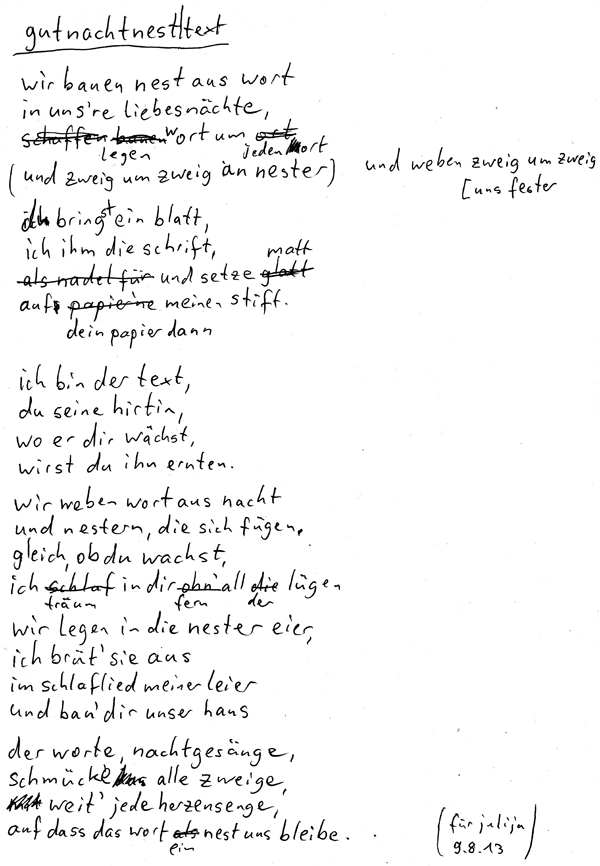 gutnachtnest|text
wir bauen nest aus wort
in uns're liebesnächte,
schaffen bauen wort um ort
legen jeden Wort
(und zweig um zweig an nester) und weben zweig um zweig
[uns fester
du bringst ein blatt,
ich ihm die schrift,
matt
als nadel für und setze glatt
auf papierne meinen stift.
dein papier dann
ich bin der text,
du seine hirtin,
wo er dir wächst,
wirst du ihn ernten.
wir weben wort aus nacht
und nestern, die sich fügen.
gleich, ob du wachst,
ich schlaf in dir ohn' all die lügen
träum fern der
wir legen in die nester eier,
ich brüt' sie aus
im schlaflied meiner leier
und bau' dir unser haus
der worte, nachtgesänge,
schmücke alle zweige,
weit' jede herzensenge,
auf dass das wort als nest uns bleibe.
ein
(für julija)
9.8.13